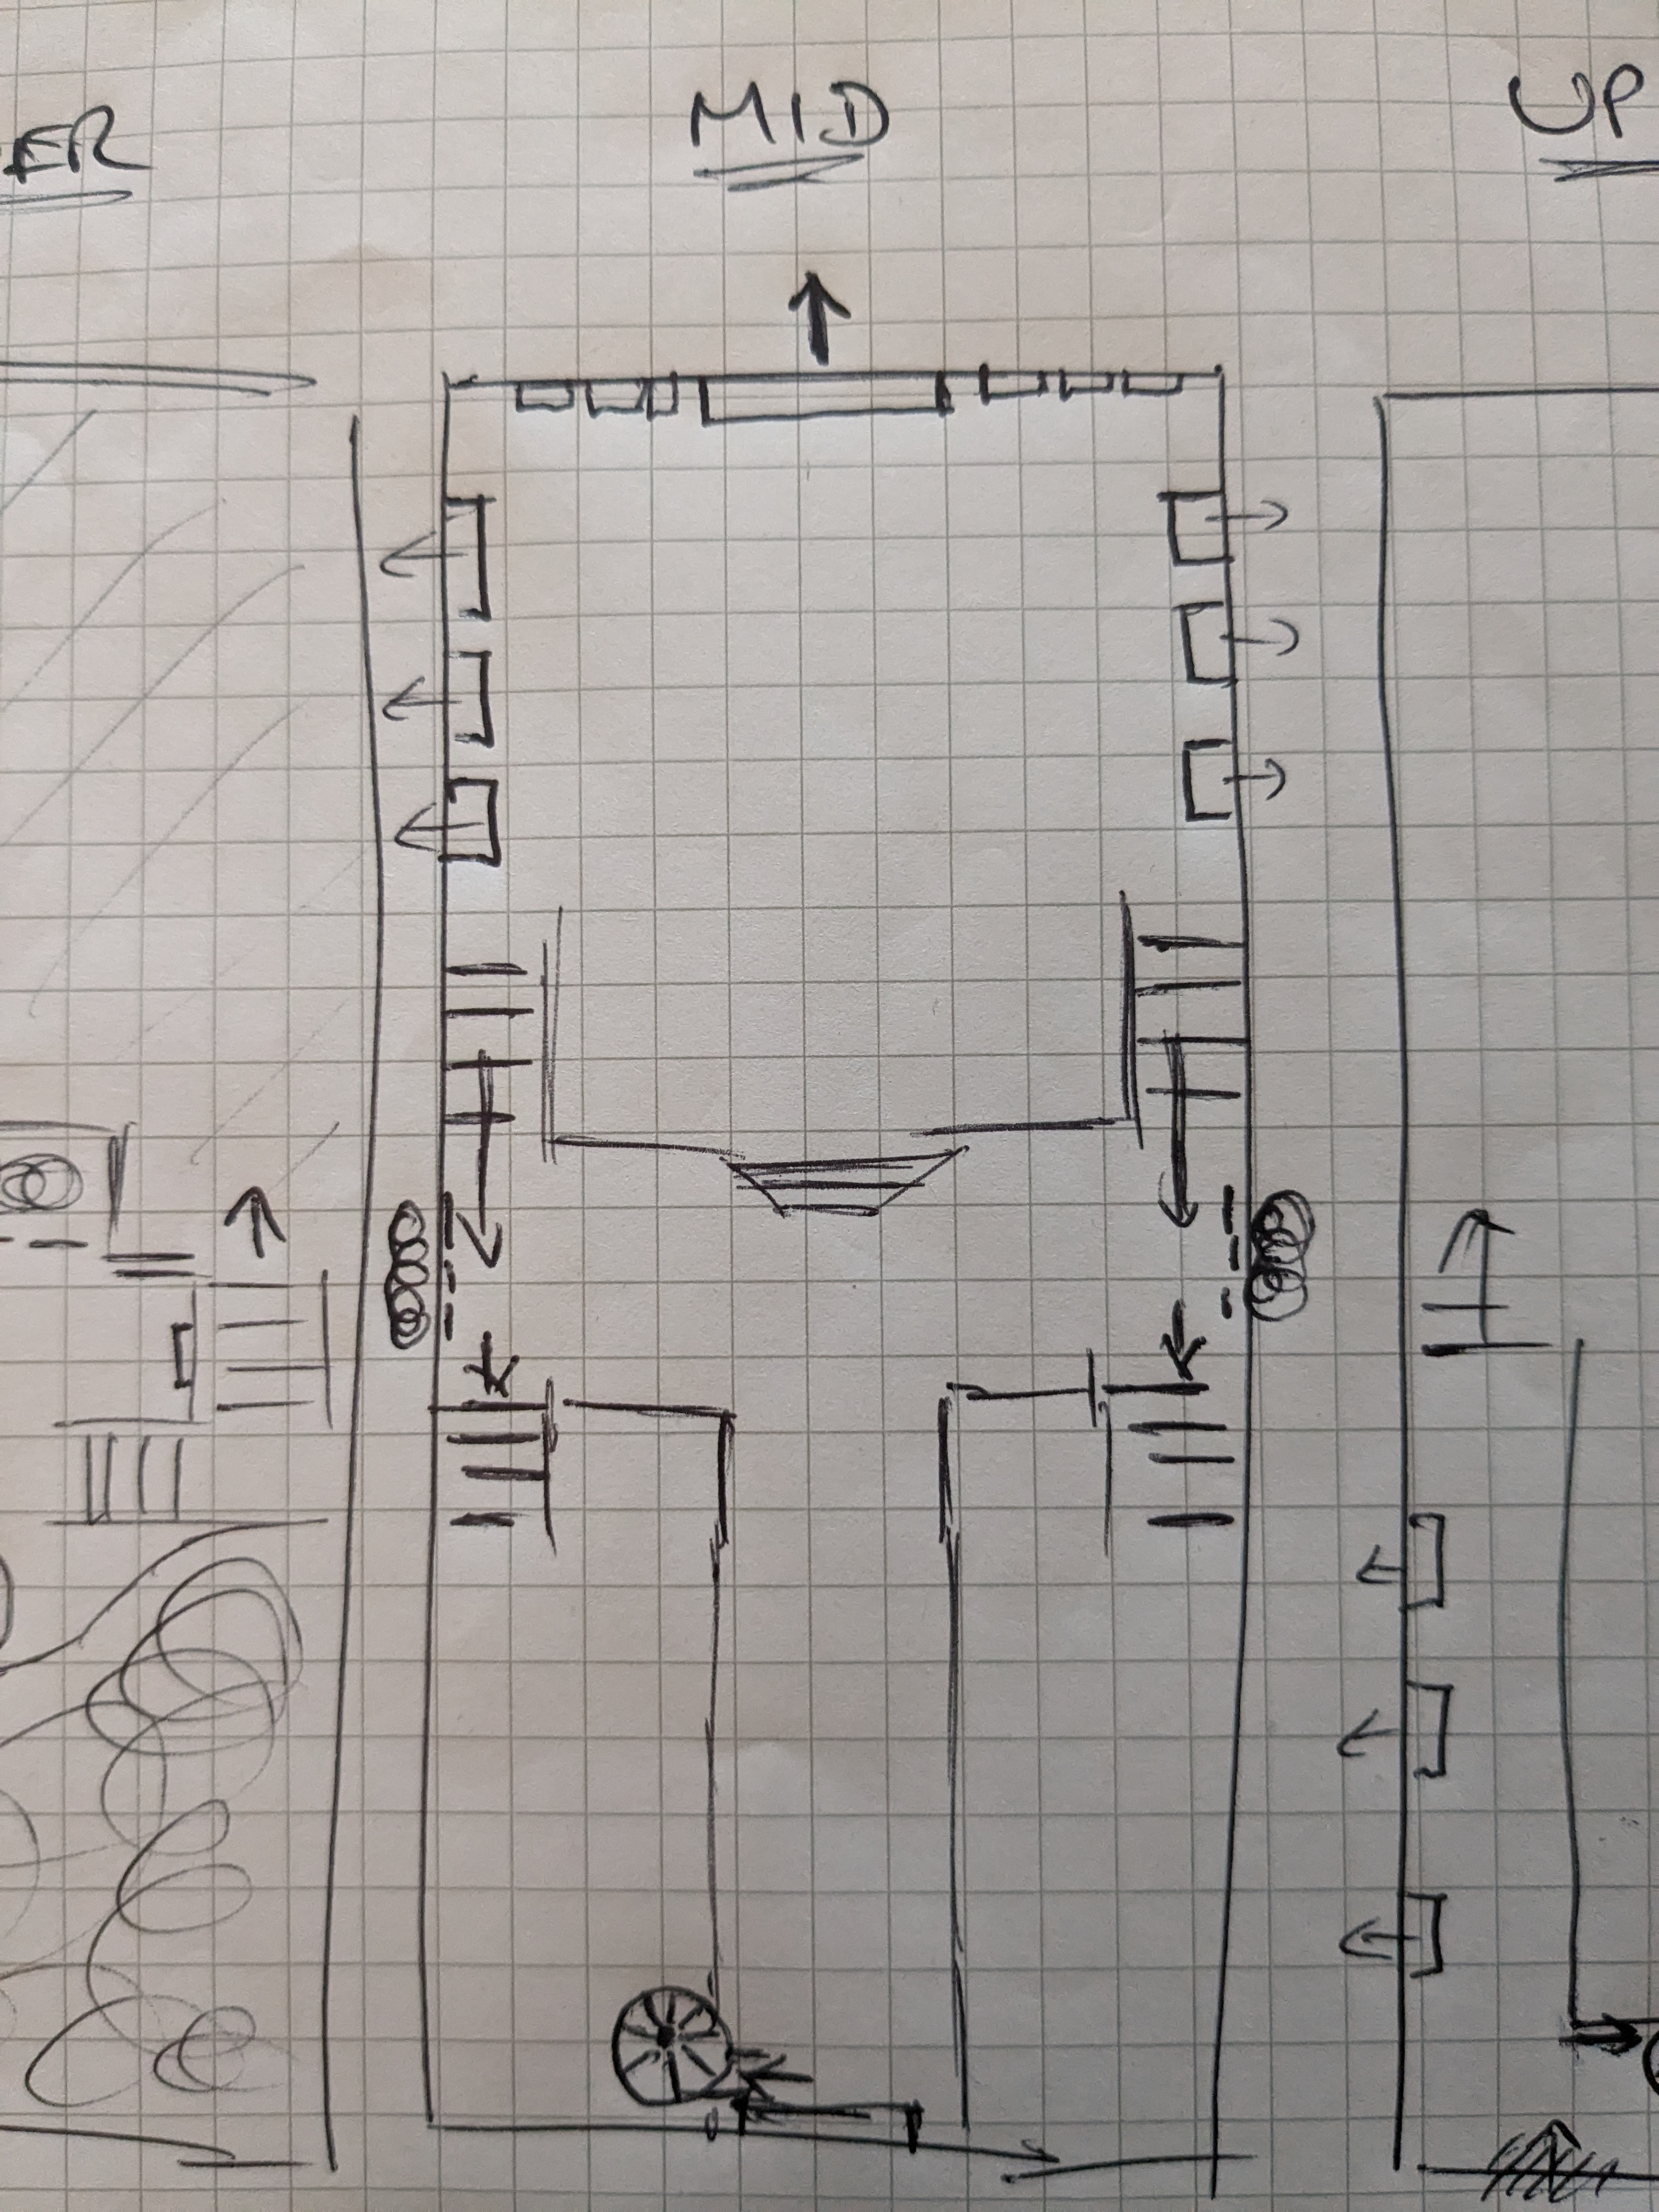 ER
MID
UP